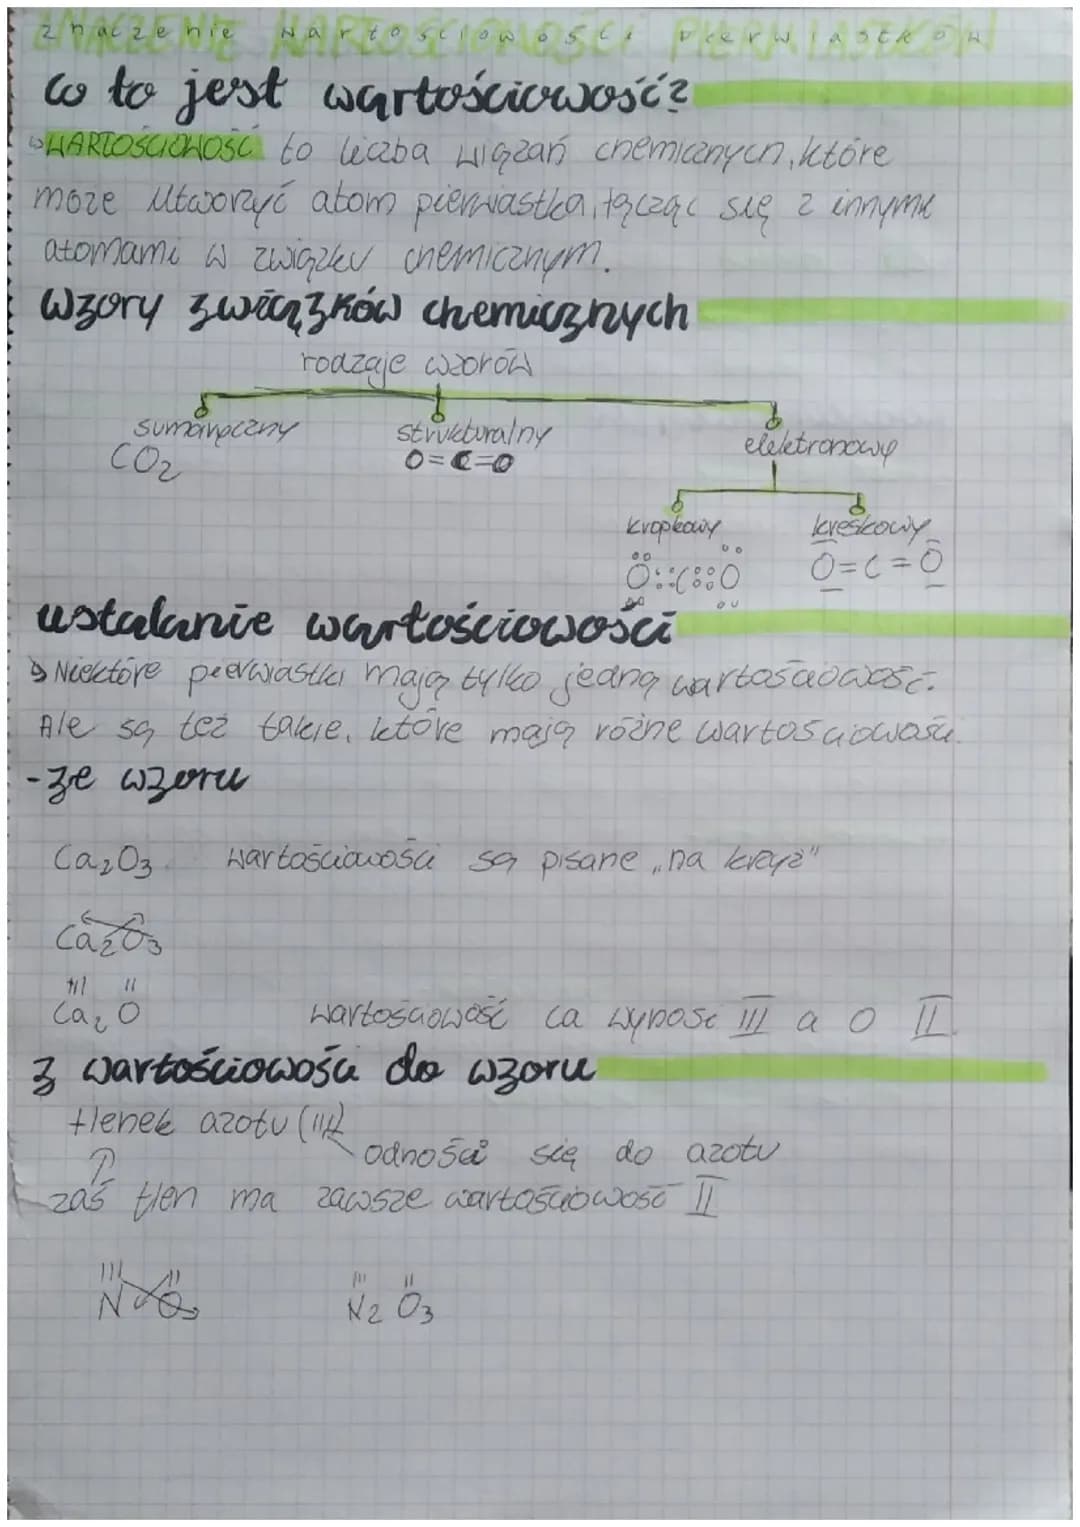 znaczenie wartościowości pierwiastków
co to jest wartościowość?
WARTOŚCIOWOŚĆ to liczba wiązań chemicznych, które
może utworzyć atom pierwiastka, łącząc się z innymi
atomami w związku chemicznym.
wzory związków chemicznych
rodzaje wzorów
sumaryczny strukturalny elektronowy
CO2 O=C=O
kropkowy kreskowy
O::C::O O=C=O
ustalanie wartościowości
Niektóre pierwiastki mają tylko jedną wartościowość.
Ale są też takie, które mają różne wartościowości.
- ze wzoru
Ca2O3 wartościowości są pisane „na krzyż"
Ca2O3
III II
Ca2 O wartościowość Ca wynosi III a O II.
z wartościowości do wzoru
tlenek azotu (III)
odnosi się do azotu
zaś tlen ma zawsze wartościowość II
III II III II
N O N2 O3